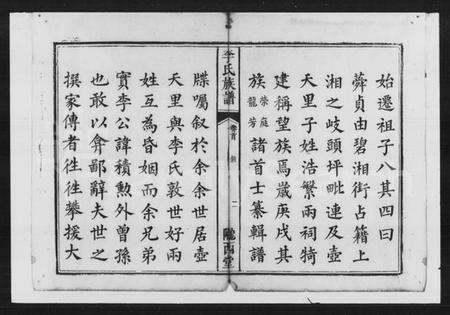 始遷祖子八其四曰
舜貞由碧湘街占籍上
湘之岐頭坪毗連及壺
天里子姓浩繁兩祠犄
建稱望族焉歲庚戌其
族榮庭龍芳諸首士纂輯譜
李氏族譜
卷首
二
隴西堂
牒囑叙於余余世居壺
天里與李氏敦世好兩
姓互為昏姻而余兄弟
實李公諱積勲外曾孫
也敢以弇鄙辭夫世之
撰家傳者徃徃攀援大